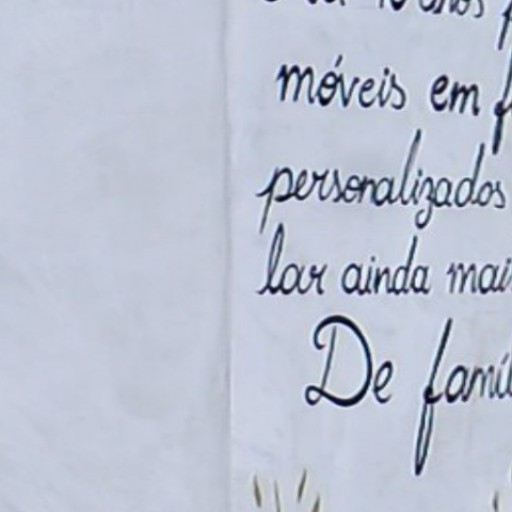 anos
móveis em
personalizados
lar ainda mais
De famíl